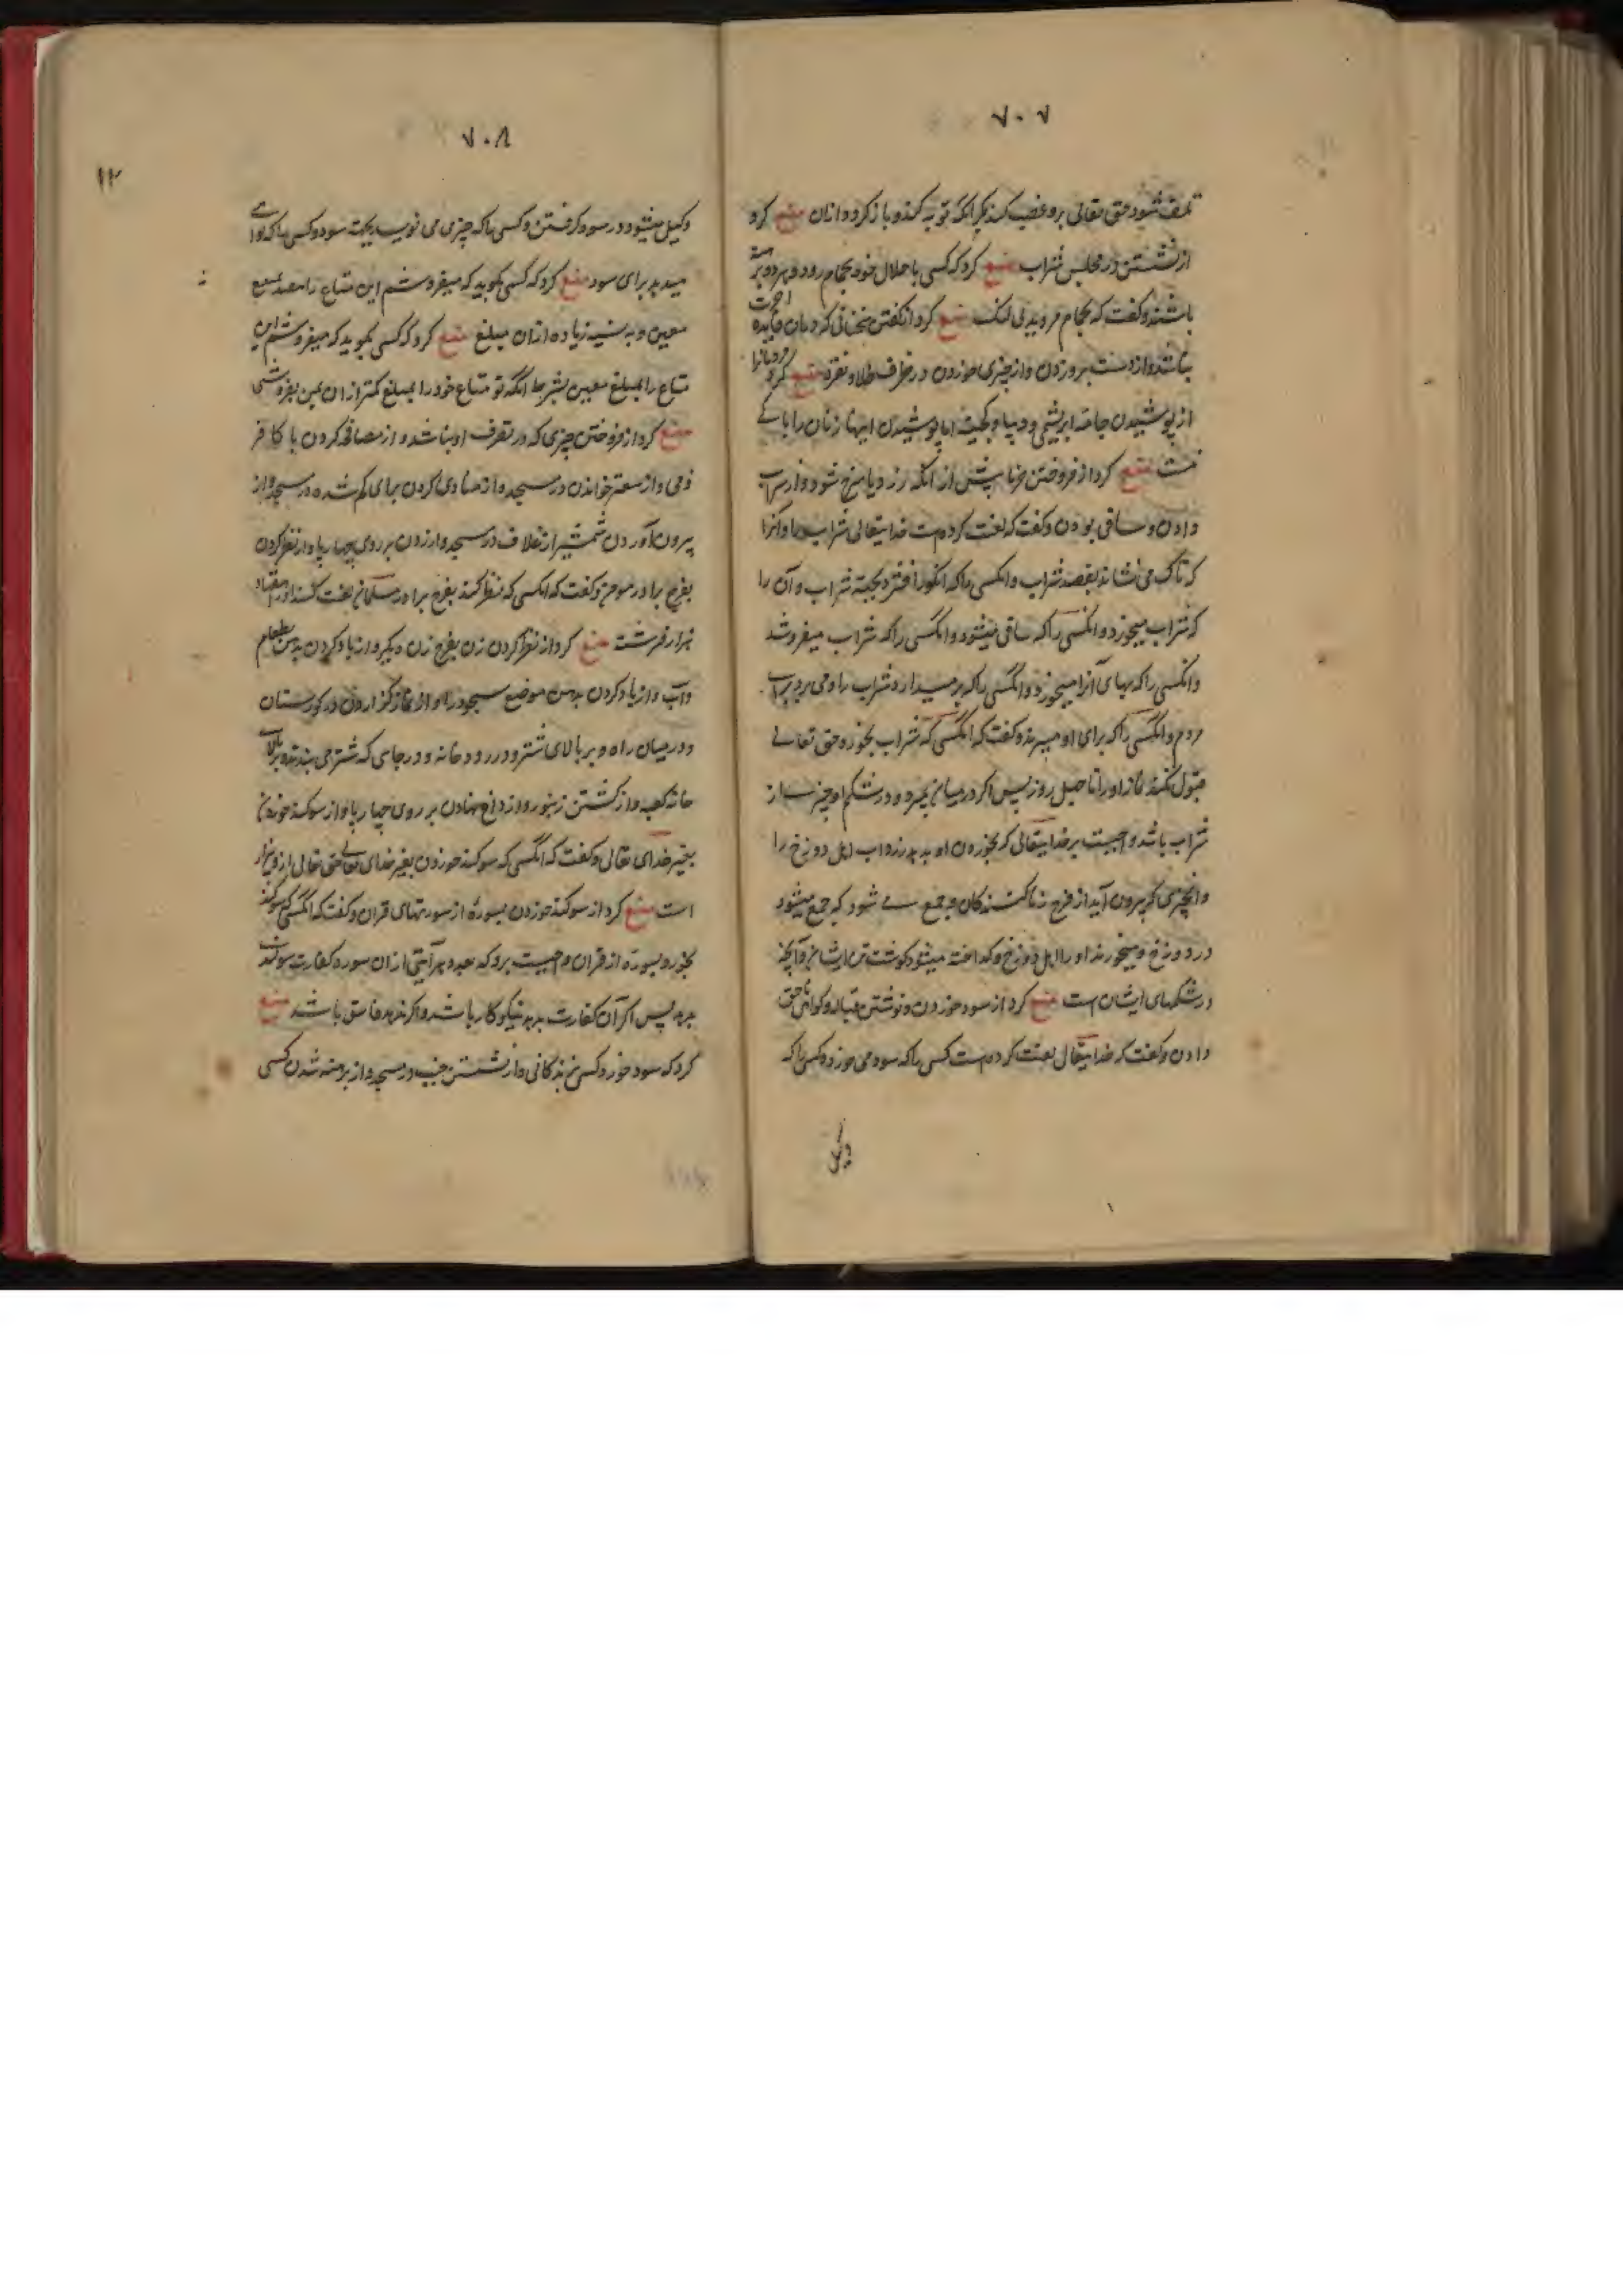 ۷۰۷
تلف شود حق تعالی برو غضب کند مگر انکه توبه کند و باز کردد از ان منع کرد
از نشستن در مجلس شراب منع کرد که کسی با حلال خود بحمام رود و هر دو برهنه
باشند و کفت که بحمام مروید بی لنک منع کرد از کفتن سخنانی که در ان فایده اخرت
نباشد و از دست برو زدن و از چیزی خوردن در ظرف طلا و نقره منع کرد مردانرا
از پوشیدن جامه ابریشمی و دیبا و اما پوشیدن اینها زنان را باکے
نیست منع کرد از فروختن خرما پیش از انکه زرد یا سرخ شود و از شراب
دادن و ساقی بودن و کفت که لعنت کرده است خدایتعالی شراب را و آنرا
که تاک می نشاند بقصد شراب و انکسی را که انکور افشرد بجهة شراب و آن را
که شراب میخورد و انکسی را که ساقی میشود و انکسی را که شراب میفروشد
و انکسی را که بهای آنرا میخورد و انکسی را که بر میدارد شراب را و می برد برای
مردم و انکسی را که برای او میبرند و کفت که انکسی که شراب بخورد حق تعالے
قبول نکند نماز او را تا چهل روز پس اکر در میان بمیرد و در شکم او چیزے از
شراب باشد واجبست بر خدایتعالی که بخوردن او بدهد زرداب اهل دوزخ را
و انچیزی که بیرون آید از فرج زنا کنندکان و جمع مے شود که جمع میشود
در دوزخ و میخورند او را اهل دوزخ و کداخته میشود کوشت تن ایشان و آنچه
در شکمهای ایشان است منع کرد از سود خوردن و نوشتن قباله و کواهی ناحق
دادن و کفت که خدایتعالی لعنت کرده است کسی را که سود می خورد و کسی را که
وکیل
۷۰۸
۱۲
وکیل میشود در سود کرفتن و کسی را که چیزی می نویسد بجهة سود و کسی را که کواهے
میدهد برای سود منع کرد که کسی بکوید که میفروشم این متاع را بنقد بمبلغ
معین و به نسیه زیاده از ان مبلغ منع کرد که کسی بکوید که میفروشم این
متاع را بمبلغ معین بشرط انکه تو متاع خود را بمبلغ کمتر از ان بمن بفروشی
منع کرد از فروختن چیزی که در تصرف او نباشد و از مصافحه کردن با کافر
ذمی و از شعر خواندن در مسجد و از منادی کردن برای کم شده در مسجد و از
بیرون آوردن شمشیر از غلاف در مسجد و از زدن بر روی چهار پا و از نظر کردن
بفرج برادر مومن و کفت که انکسی که نظر کند بفرج برادر مسلمان لعنت کنند او را هفتاد
هزار فرشته منع کرد از نظر کردن زن بفرج زن دیکر و از باد کردن بدهن بطعام
و آب و از باد کردن بدهن موضع سجود را و از نماز کزاردن در کورستان
و در میان راه و بر بالای شتر و در رودخانه و در جای که شتر می بندند و بر بالای
خانه کعبه و از کشتن زنبور و از داغ نهادن بر روی چهار پا و از سوکند خوردن
بغیر خدای تعالی و کفت که انکسی که سوکند خوردن بغیر خدای تعالی حق تعالی از و بیزار
است منع کرد از سوکند خوردن بسورهٔ از سورتهای قران و کفت که انکسی که سوکند
بخورد بسورهٔ از قران واجبست برو که بعدد هر آیتی از ان سوره کفارت سوکند
بدهد پس اکر آن کفارت بدهد نیکوکار باشد و اکر ندهد فاسق باشد منع
کرد که سود خورد و کسی از نشستن جنب در مسجد و از برهنه شدن کسی